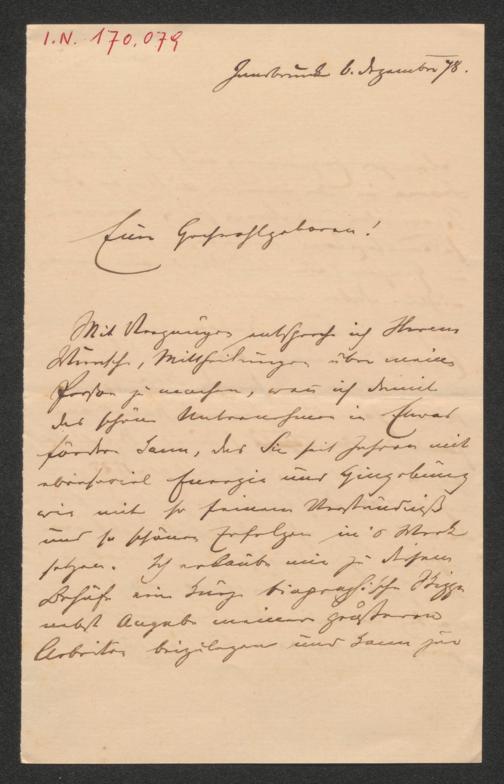 I.N. 170.079
Innsbruck 6. Dezember 78.
Euer Hochwohlgeboren!
Mit Vergnügen entspreche ich Ihrem
Wunsche, Mittheilungen über meine
Person zu machen, wenn ich damit
das schöne Unternehmen in Etwas
fördern kann, das Sie seit Jahren mit
ebensoviel Energie und Hingebung
wie mit so feinem Verständniß
und so schönen Erfolgen in's Werk
setzen. Ich erlaube mir zu diesem
Behufe eine kurze biographische Skizze
nebst Angabe meiner größeren
Arbeiten beizulegen und kann zur